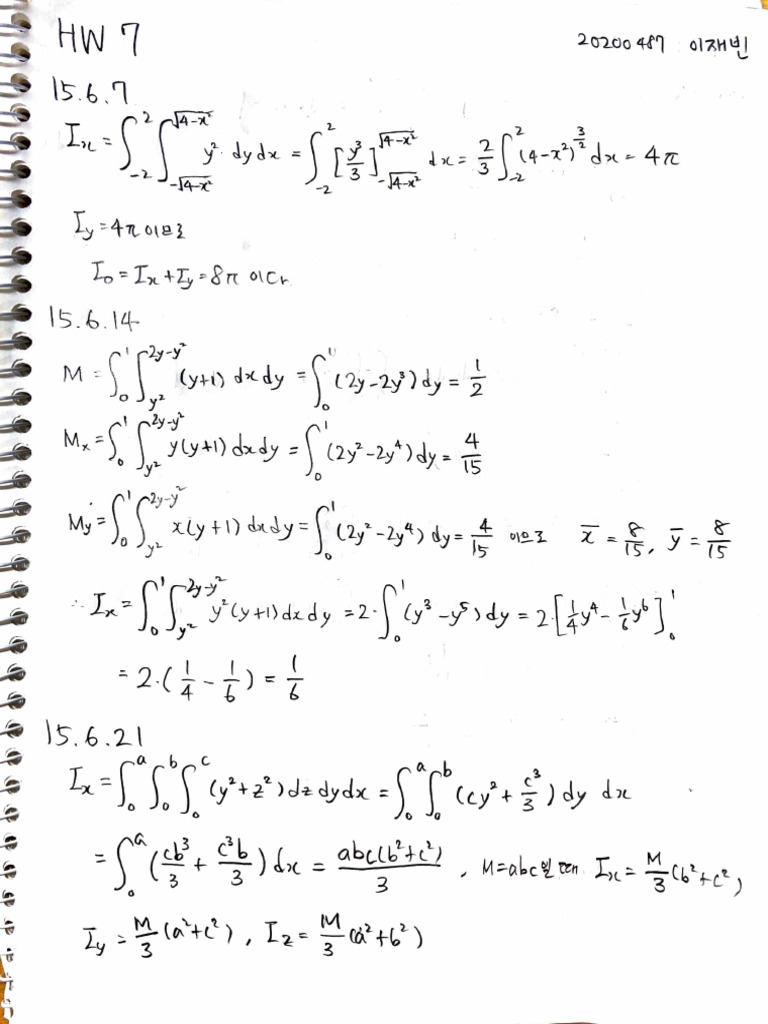 HW 7 20200487 이재빈
15.6.7
Iₓ = ∫₋₂² ∫_{-√(4-x²)}^{√(4-x²)} y² dy dx = ∫₋₂² [y³/3]_{-√(4-x²)}^{√(4-x²)} dx = 2/3 ∫₋₂² (4-x²)^{3/2} dx = 4π
I_y = 4π 이므로
I₀ = Iₓ + I_y = 8π 이다.
15.6.14
M = ∫₀¹ ∫_{y²}^{2y-y²} (y+1) dx dy = ∫₀¹ (2y-2y³) dy = 1/2
Mₓ = ∫₀¹ ∫_{y²}^{2y-y²} y(y+1) dx dy = ∫₀¹ (2y²-2y⁴) dy = 4/15
M_y = ∫₀¹ ∫_{y²}^{2y-y²} x(y+1) dx dy = ∫₀¹ (2y²-2y⁴) dy = 4/15 이므로 x̄ = 8/15, ȳ = 8/15
∴ Iₓ = ∫₀¹ ∫_{y²}^{2y-y²} y²(y+1) dx dy = 2·∫₀¹ (y³-y⁵) dy = 2·[1/4 y⁴ - 1/6 y⁶]₀¹
= 2·(1/4 - 1/6) = 1/6
15.6.21
Iₓ = ∫₀ᵃ ∫₀ᵇ ∫₀ᶜ (y²+z²) dz dy dx = ∫₀ᵃ ∫₀ᵇ (cy² + c³/3) dy dx
= ∫₀ᵃ (cb³/3 + c³b/3) dx = abc(b²+c²)/3 , M=abc일 때 Iₓ = M/3 (b²+c²)
I_y = M/3 (a²+c²), I_z = M/3 (a²+b²)